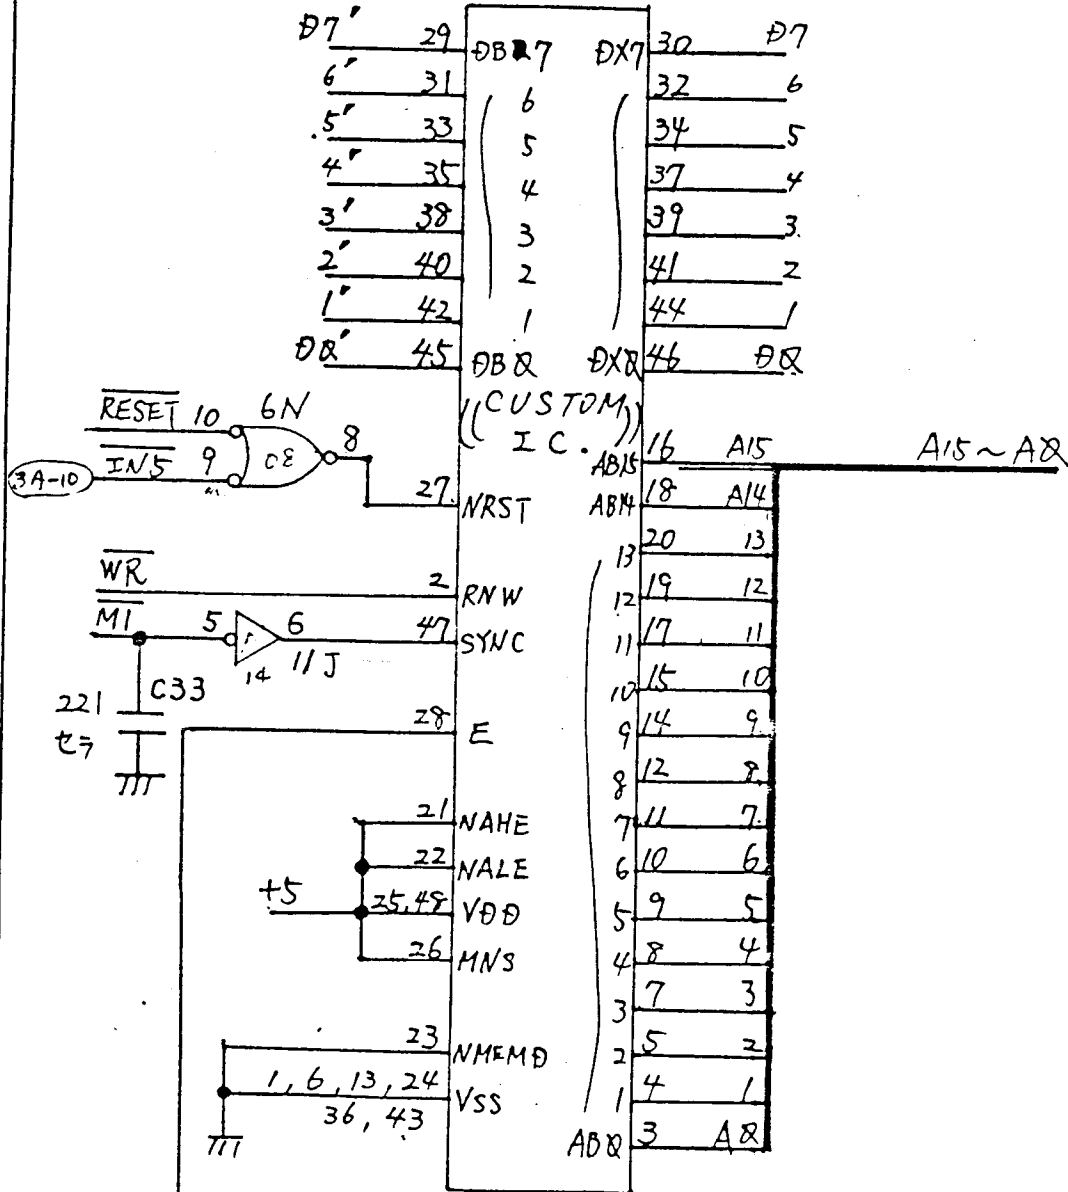 D7' 29 DB7 DX7 30 D7
6' 31 6 32 6
5' 33 5 34 5
4' 35 4 37 4
3' 38 3 39 3
2' 40 2 41 2
1' 42 1 44 1
D0' 45 DB0 DX0 46 D0
((CUSTOM IC.))
RESET 10 6N
IN5 9 8
3A-10
27 NRST
WR 2 RNW
M1 5 6 47 SYNC
14 11J
C33
221
セラ
28 E
21 NAHE
22 NALE
+5 25,48 VDD
26 MNS
23 NMEMD
1, 6, 13, 24 VSS
36, 43
AB15 16 A15 A15~A0
AB14 18 A14
13 20 13
12 19 12
11 17 11
10 15 10
9 14 9
8 12 8
7 11 7
6 10 6
5 9 5
4 8 4
3 7 3
2 5 2
1 4 1
AB0 3 A0